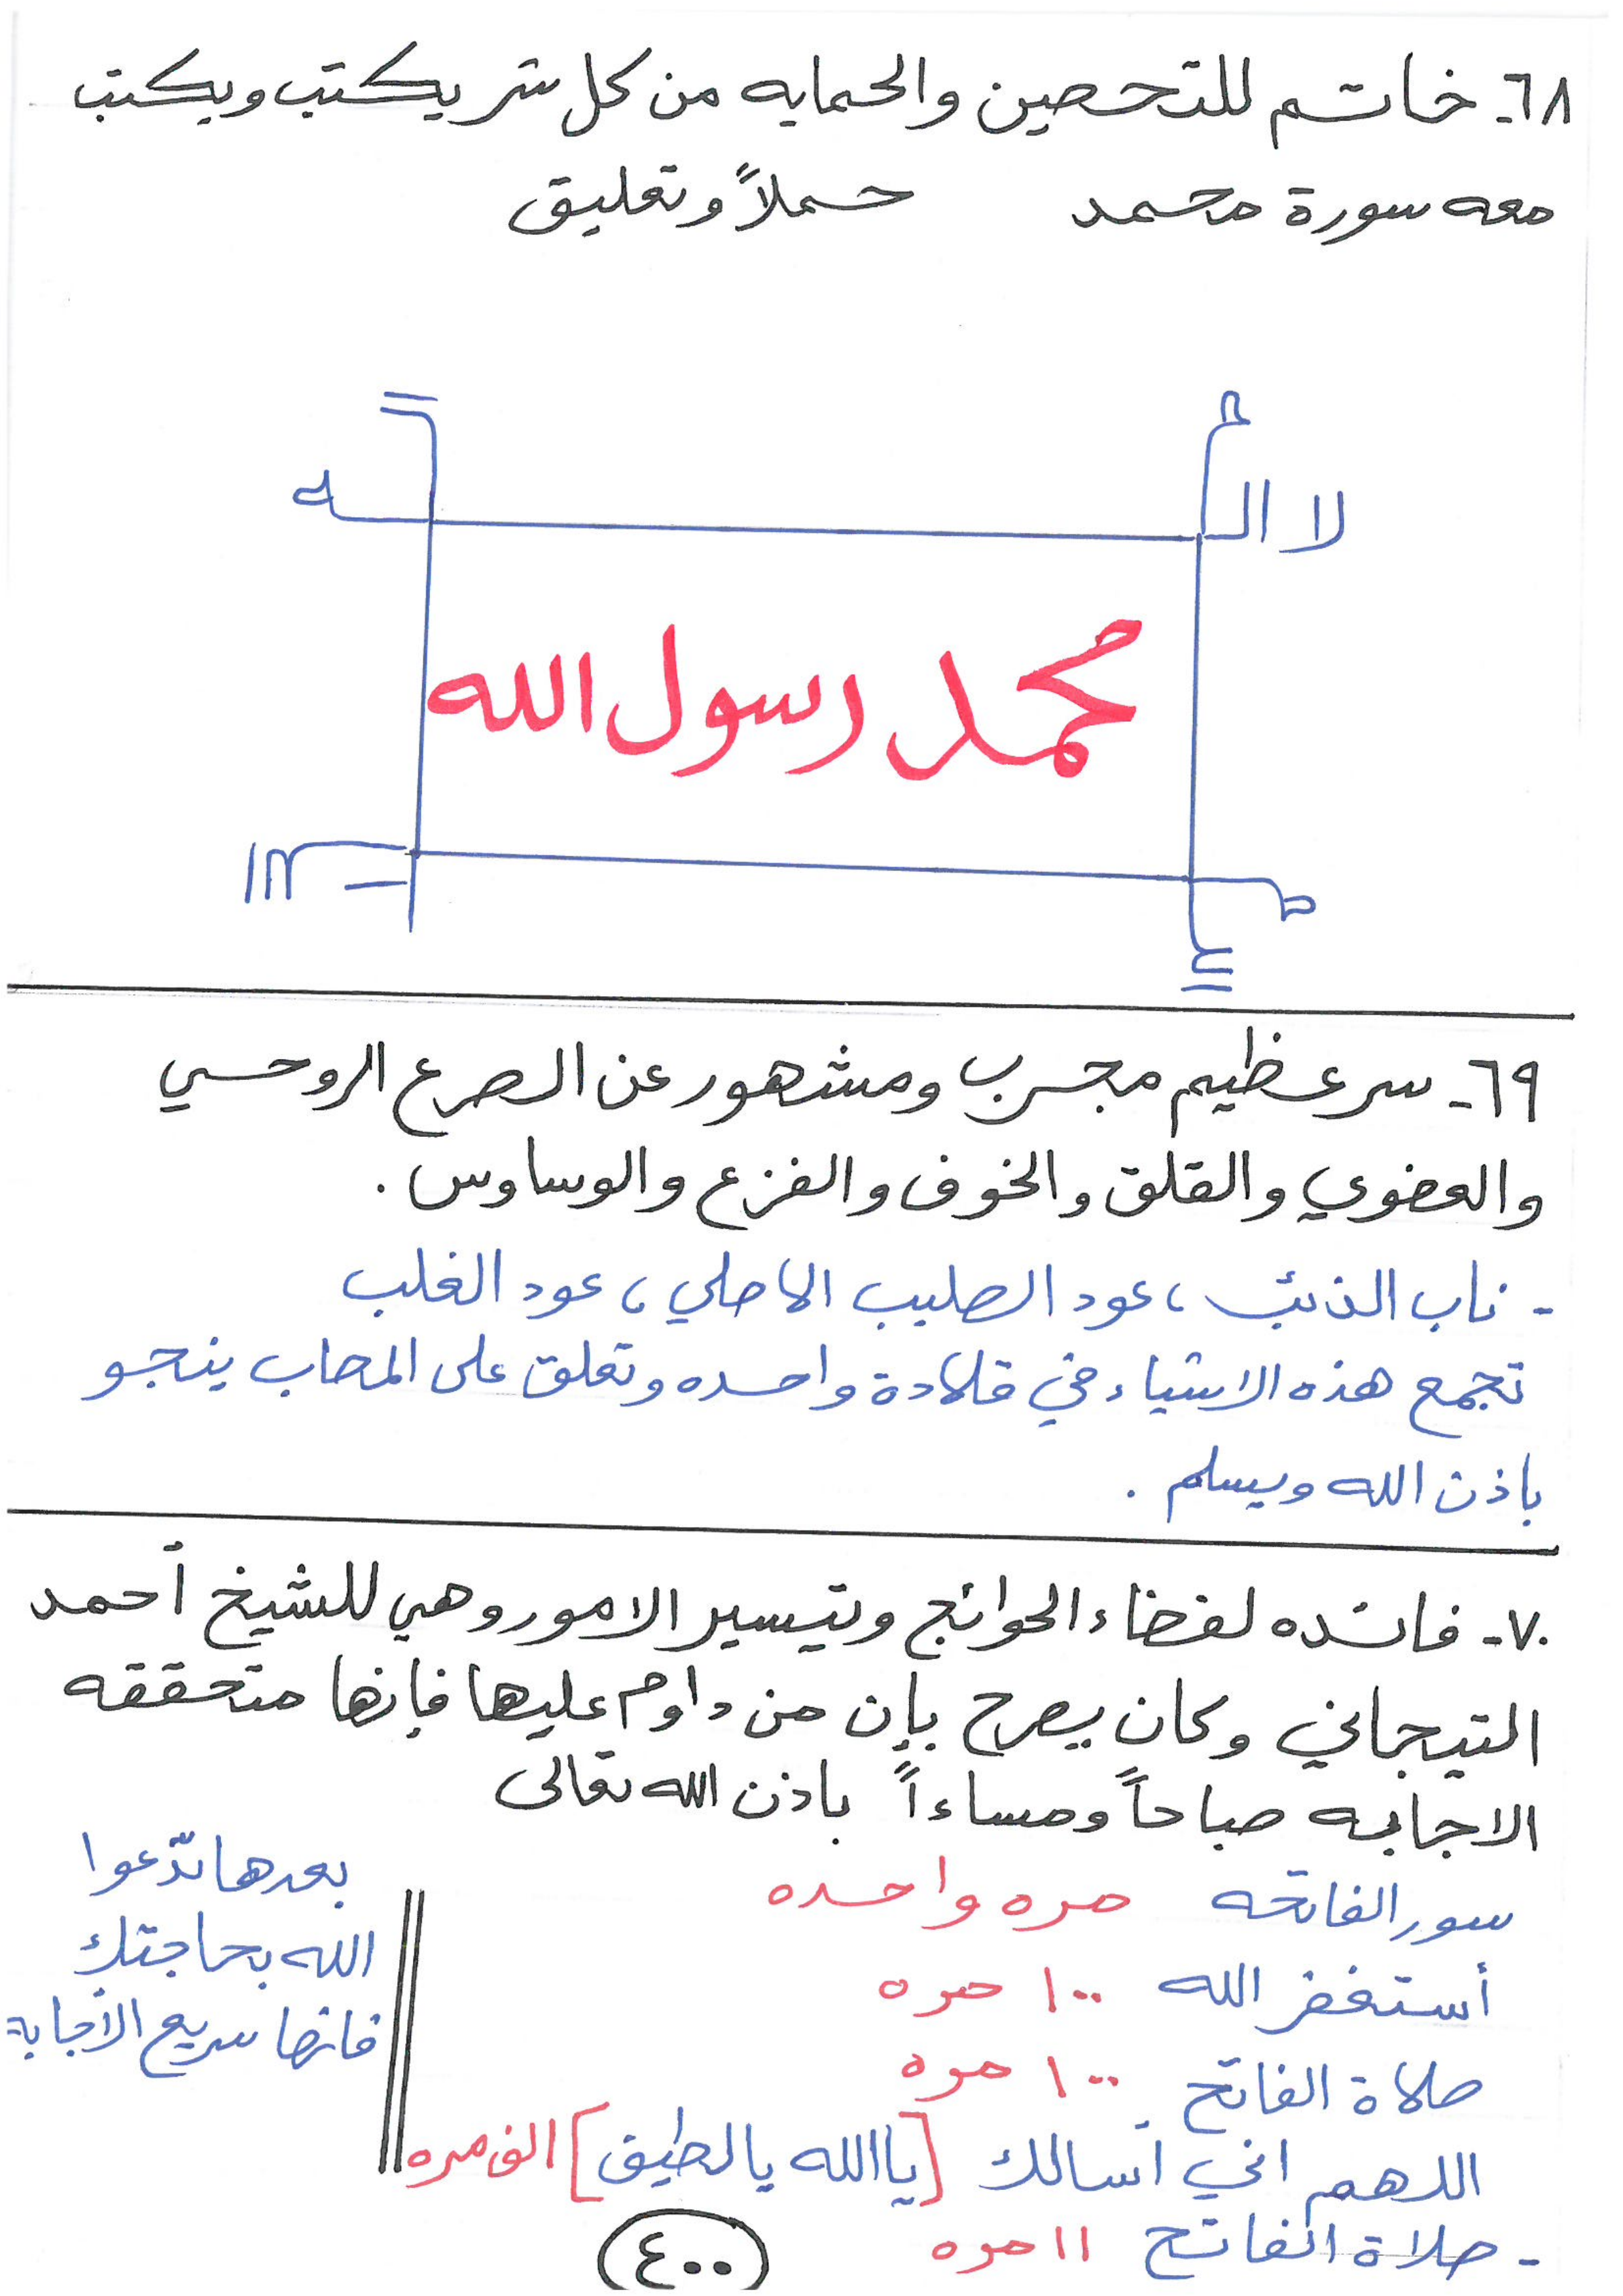 ٦٨- خاتم للتحصين والحمايه من كل شر يكتب ويكتب
معه سورة محمد حملاً وتعليق
لا ال
ه
محمد رسول الله
٦٩- سر عظيم مجرب ومشهور عن الصرع الروحي
والعضوي والقلق والخوف والفزع والوساوس .
- ناب الذئب ، عود الصليب الاصلي ، عود الغلب
تجمع هذه الاشياء في قلادة واحده وتعلق على المصاب ينجو
باذن الله ويسلم .
٧٠- فائده لقضاء الحوائج وتيسير الامور وهي للشيخ أحمد
التيجاني وكان يصرح بإن من داوم عليها فإنها متحققه
الاجابه صباحاً ومساءاً باذن الله تعالى
سور الفاتحه مره واحده
أستغفر الله ١٠٠ مره
صلاة الفاتح ١٠٠ مره
اللهم اني أسالك [يا الله يا لطيف] الف مره
- صلاة الفاتح ١١ مره
بعدها تدّعوا
الله بحاجتك
فانها سريع الأجابة
٤٠٠